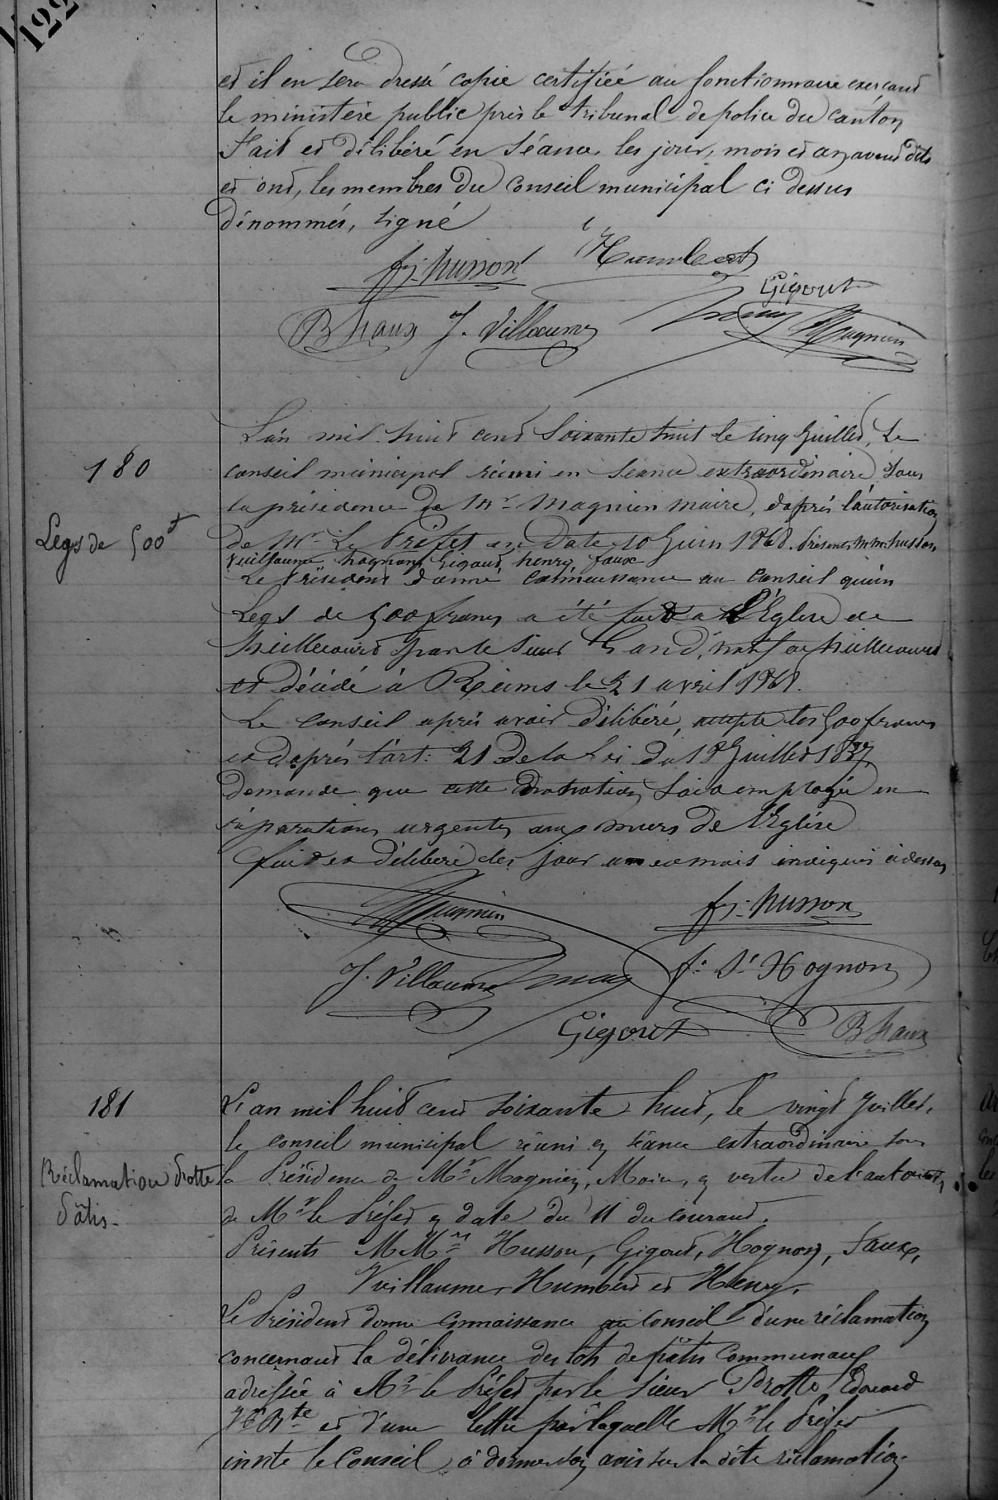 122
et il en sera dressé copie certifiée au fonctionnaire exerçant
le ministère public près le tribunal de police du canton
Fait et délibéré en séance, les jour, mois et an avant dits
et ont, les membres du Conseil municipal ci dessus
dénommés, signé
fs. husson Humbert
Gigout
B Faux J. Villaume Henry Magnien
180
Legs de 500f
L'an mil huit cent Soixante huit le cinq Juillet, Le
conseil municipal réuni en Séance extraordinaire, sous
la présidence de Mr Magnien maire, d'après l'autorisation
de Mr Le Préfet en date 10 Juin 1868. Présents mm husson
Vuillaume, hognon, Gigout, henry, faux
Le Président donne connaissance au Conseil qu'un
Legs de 500 francs a été fait a l'Eglise de
par le Sieur
et décédé à Reims le 21 avril 1868.
Le Conseil après avoir délibéré, accepte les 500 francs
et d'après l'art: 21 de la Loi du 18 Juillet 1837
demande que cette donation soit employée en
réparations urgentes aux murs de l'Eglise
fait et délibéré les jour an et mois indiqués ci dessus
Magnien fs. husson
J. Villaume Henry f. St Hognon
Gigout B Faux
181
Réclamation Drotte
Pâtis.
L'an mil huit cent soixante huit, le vingt Juillet,
le conseil municipal réuni en séance extraordinaire sous
la Présidence de Mr Magnien, Maire, en vertu de l'autorisation
de Mr le Préfet en date du 11 du courant.
Présents MMrs Husson, Gigout, Hognon, Faux,
Vuillaume, Humbert et Henry.
Le Président donne connaissance au Conseil d'une réclamation
concernant la délivrance des lots de pâtis communaux
adressée à Mr le Préfet par le sieur Drotte Edouard
et d'une lettre par laquelle Mr le Préfet
invite le Conseil à donner son avis sur la dite réclamation.